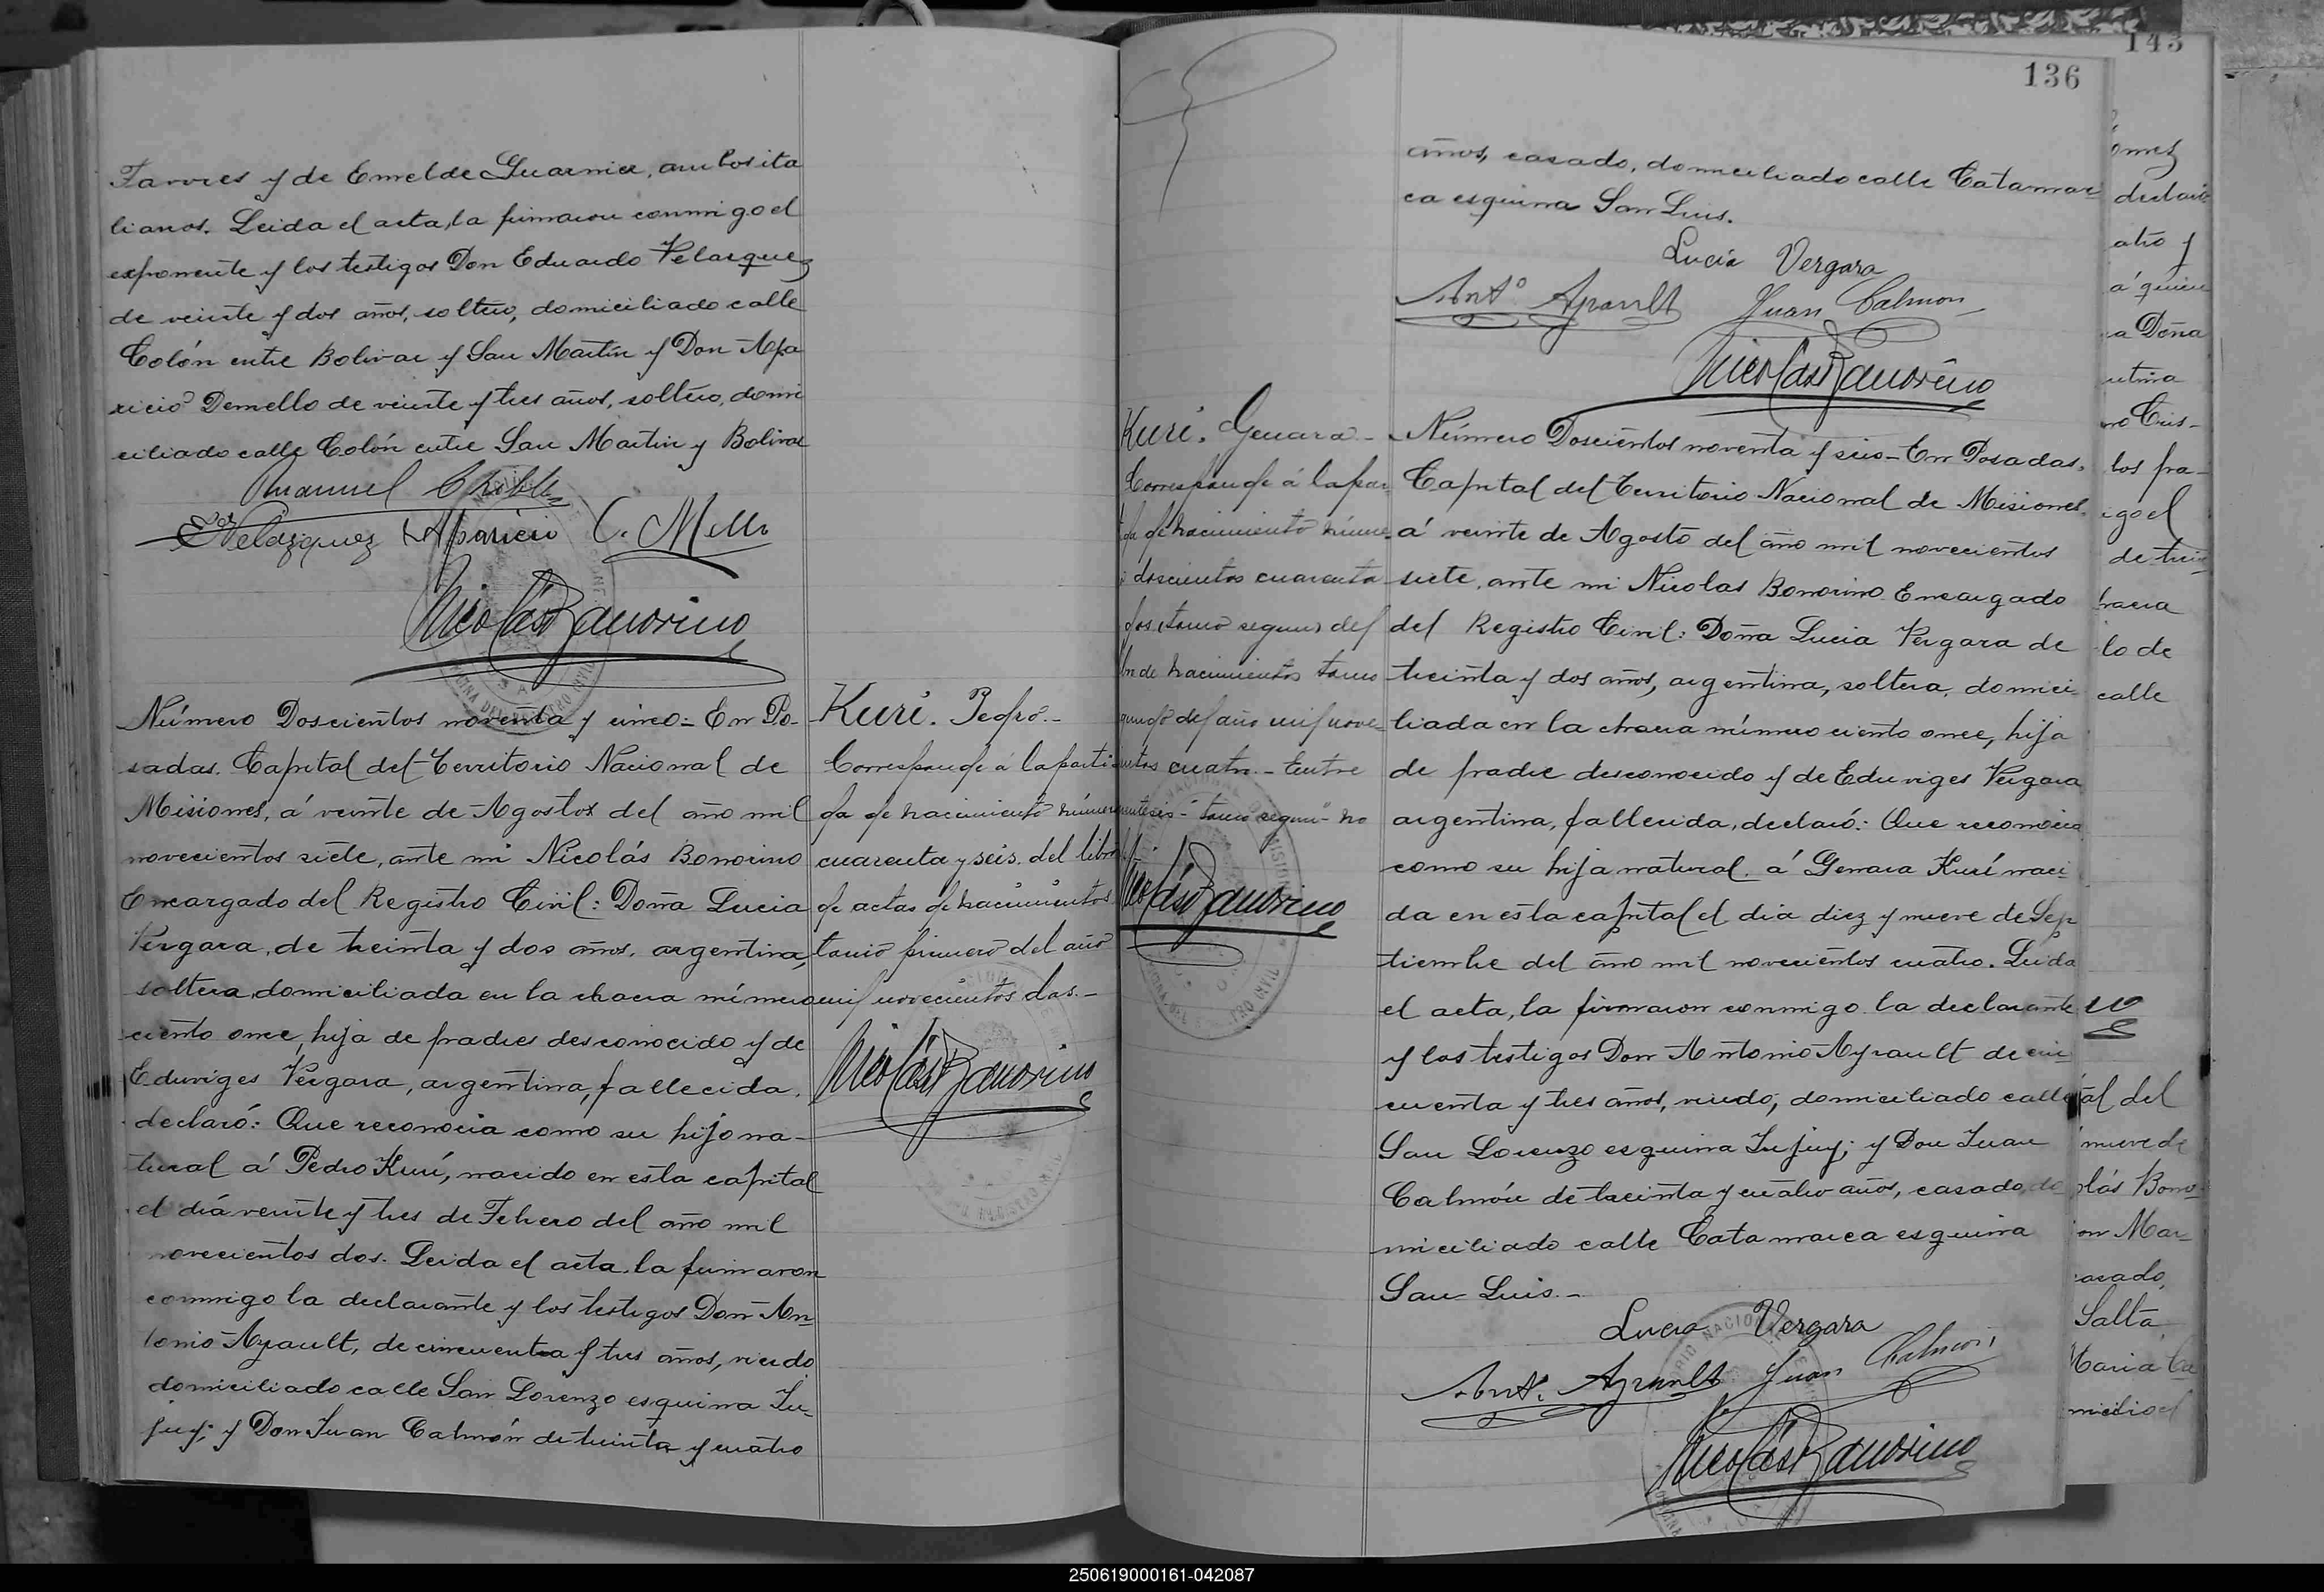 Tarries y de Emelde Guarnier, ambos ita
lianos. Leida el acta, la firmaron conmigo el
exponente y los testigos Don Eduardo Velasquez
de veinte y dos años, soltero, domiciliado calle
Colón entre Bolivar y San Martin y Don Apa
ricio Demello de veinte y tres años, soltero, domi
ciliado calle Colón entre San Martin y Bolivar
Manuel
E Velazquez Aparicio C. Mello
Nicolás Bonorino
Número Doscientos noventa y cinco = En Po-
sadas. Capital del Territorio Nacional de
Misiones, á veinte de Agosto del año mil
novecientos siete, ante mi Nicolás Bonorino
Encargado del Registro Civil: Doña Lucia
Vergara, de treinta y dos años, argentina,
soltera, domiciliada en la chacra número
ciento once, hija de padres desconocido y de
Eduviges Vergara, argentina, fallecida,
declaró: Que reconocia como su hijo na-
tural á Pedro Kurí, nacido en esta capital
el día veinte y tres de Febrero del año mil
novecientos dos. Leida el acta, la firmaron
conmigo la declarante y los testigos Don An-
tonio Ayrault, de cincuenta y tres años, viudo
domiciliado calle San Lorenzo esquina Ju-
juy; y Don Juan Calmón de treinta y cuatro
Kuri. Pedro.-
Corresponde á la parti
da de nacimiento número
cuarenta y seis, del libro
de actas de nacimientos
tomo primero del año
mil novecientos dos.-
Nicolás Bonorino
143
136
años, casado, domiciliado calle Catamar
ca esquina San Luis.
Lucia Vergara
Antº Ayrault Juan Calmon
Nicolás Bonorino
Kuri. Genara.-
Corresponde á la par
da de nacimiento núme
doscientos cuarenta
dos, tomo segundo del
de nacimientos tomo
gundo del año mil nove-
cuatro.- Entre
"tomo segun" no
Nicolás Bonorino
Número Doscientos noventa y seis - En Posadas,
Capital del Territorio Nacional de Misiones,
á veinte de Agosto del año mil novecientos
siete, ante mi Nicolas Bonorino Encargado
del Registro Civil: Doña Lucia Vergara de
treinta y dos años, argentina, soltera, domici
liada en la chacra número ciento once, hija
de padre desconocido y de Eduviges Vergara
argentina, fallecida, declaró: Que reconocia
como su hija natural á Genara Kurí naci
da en esta capital el día diez y nueve de Sep
tiembre del año mil novecientos cuatro. Leida
el acta, la firmaron conmigo la declarante
y los testigos Don Antonio Ayrault de cin
cuenta y tres años, viudo, domiciliado calle
San Lorenzo esquina Jujuy; y Don Juan
Calmón de treinta y cuatro años, casado, do
miciliado calle Catamarca esquina
San Luis.-
Lucia Vergara
Ant. Ayrault Juan Calmon
Nicolás Bonorino
omez
declaró
atro y
á quien
a Doña
ntina
no Cris-
los pa-
igo el
de trein
hacra
lo de
calle
al del
nueve de
olás Bono-
on Mar-
casado,
Salta
Maria Ca
micilio el
250619000161-042087